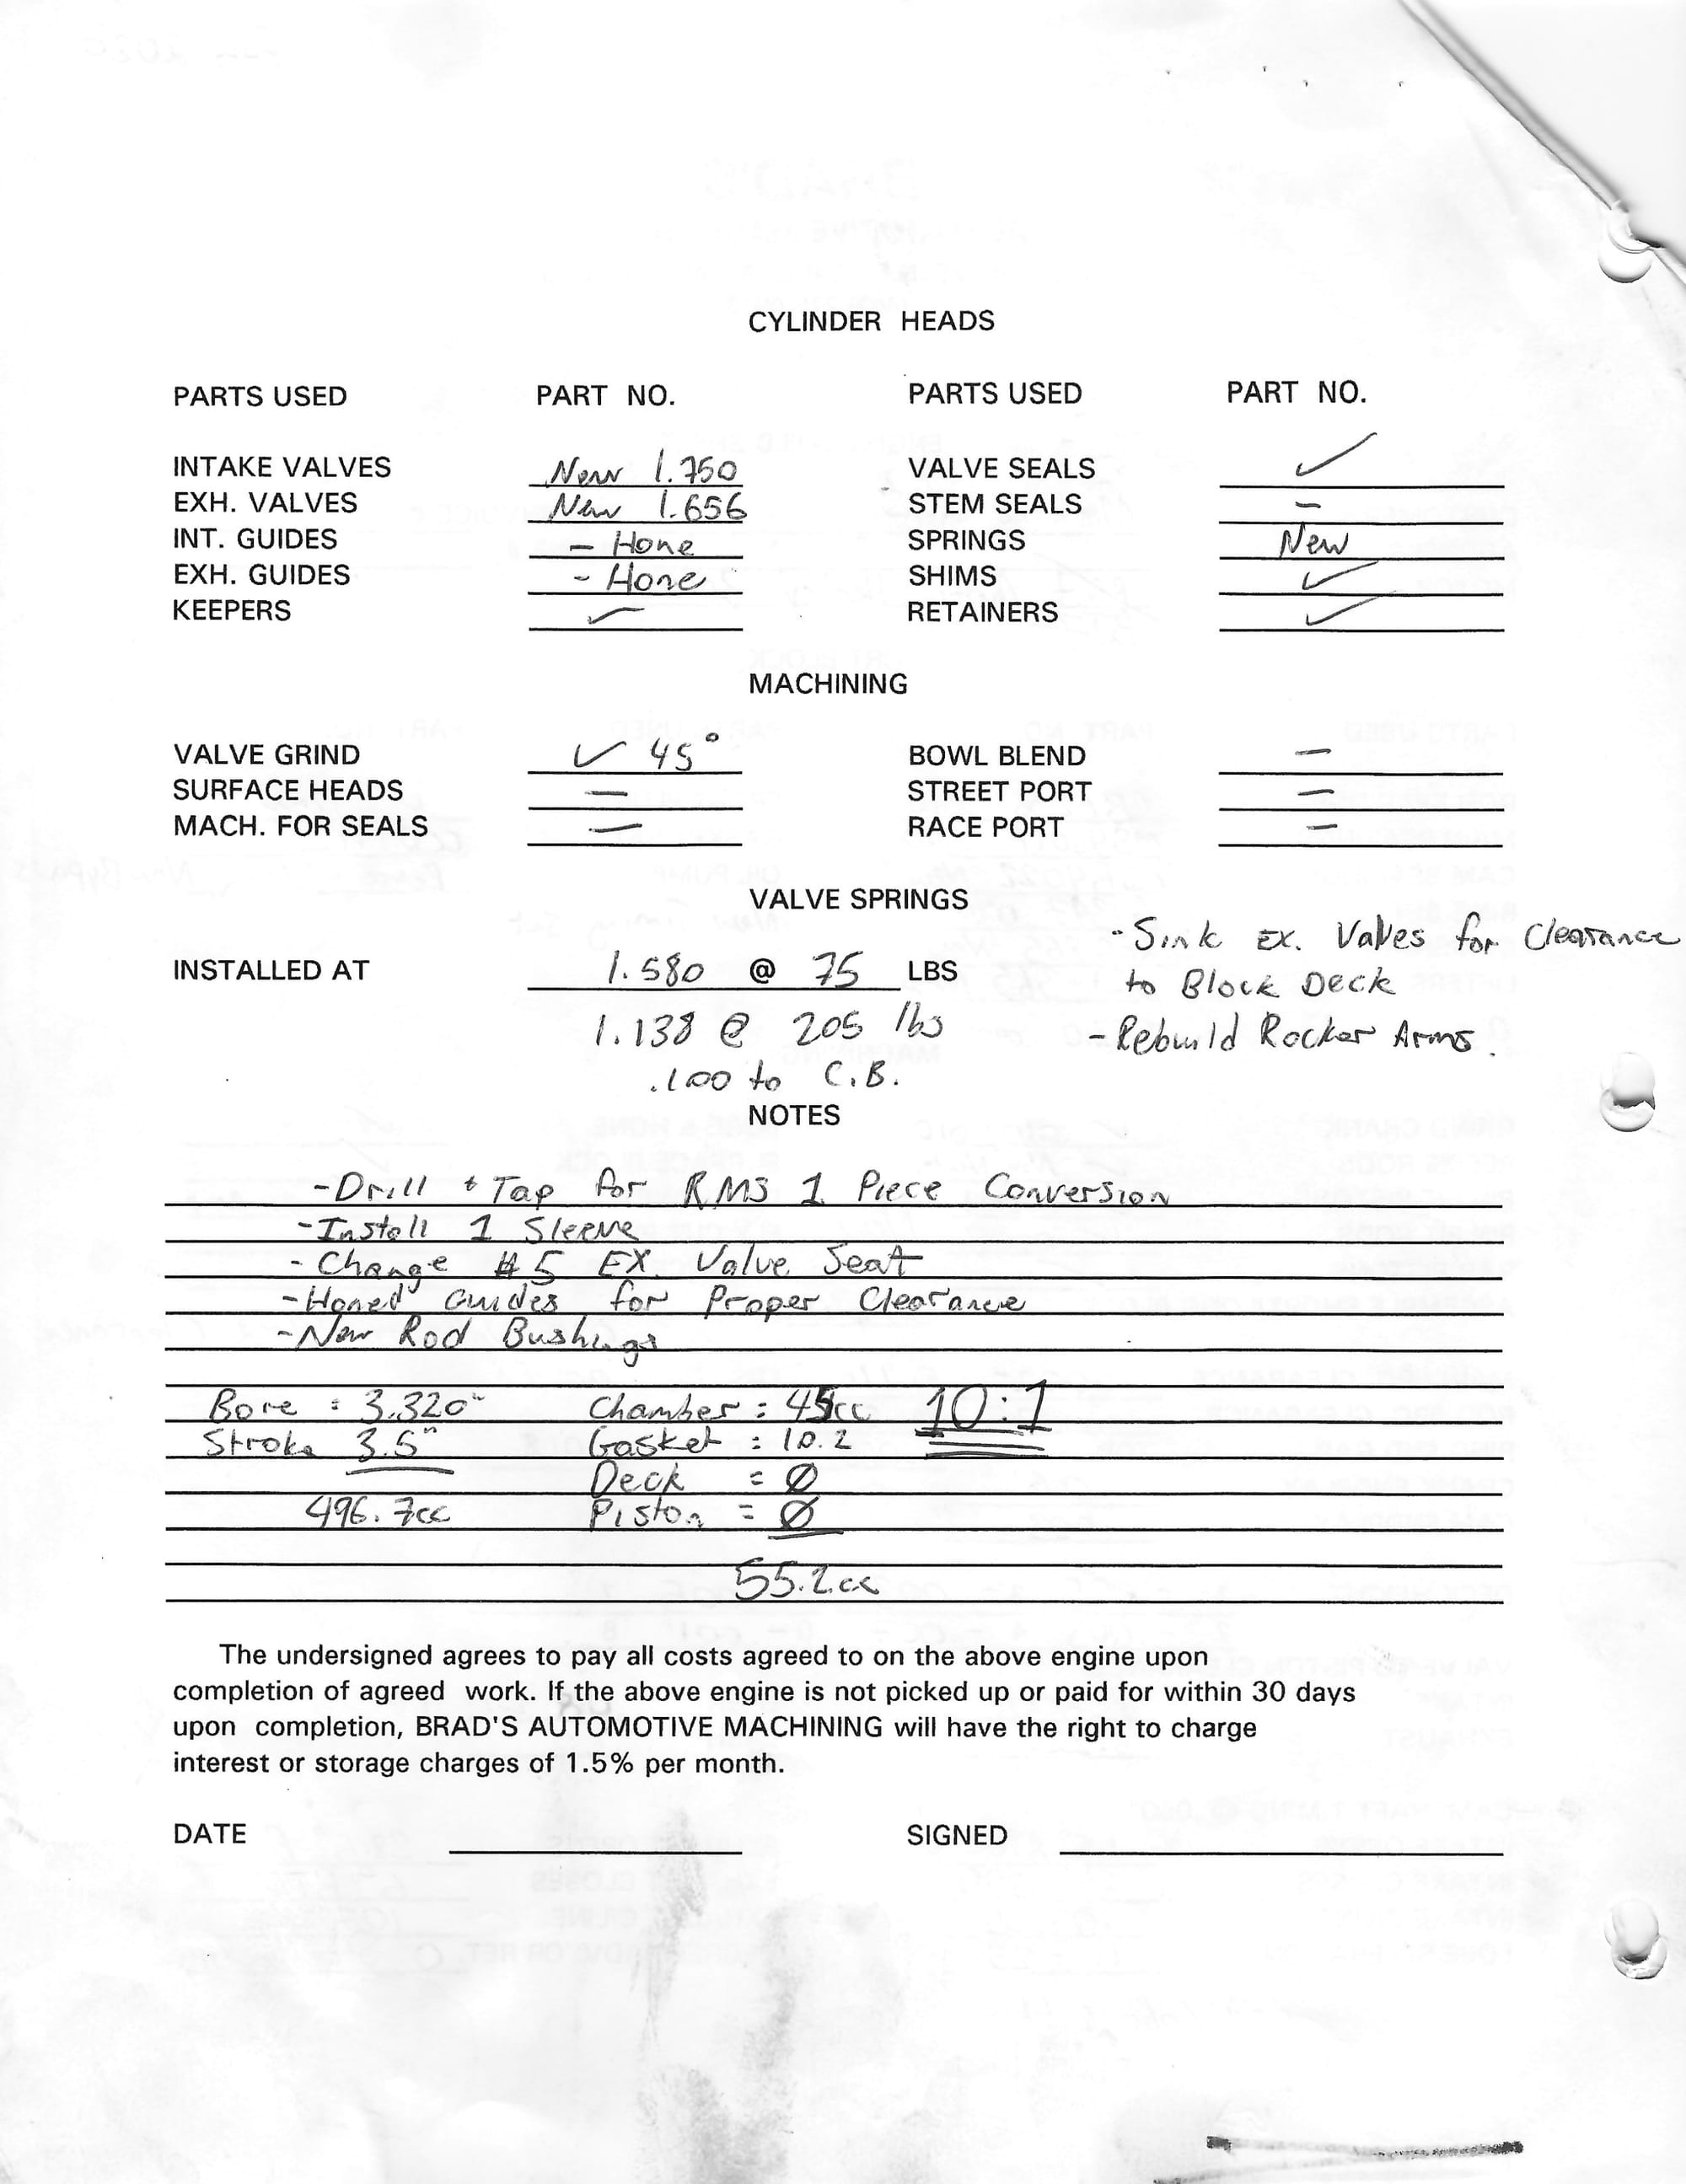 CYLINDER HEADS
PARTS USED PART NO. PARTS USED PART NO.
INTAKE VALVES New 1.750 VALVE SEALS ✓
EXH. VALVES New 1.656 STEM SEALS –
INT. GUIDES – Hone SPRINGS New
EXH. GUIDES - Hone SHIMS ✓
KEEPERS ✓ RETAINERS ✓
MACHINING
VALVE GRIND ✓ 45° BOWL BLEND –
SURFACE HEADS – STREET PORT –
MACH. FOR SEALS – RACE PORT –
VALVE SPRINGS
- Sink Ex. Valves for Clearance
to Block Deck
- Rebuild Rocker Arms.
INSTALLED AT 1.580 @ 75 LBS
1.138 @ 205 lbs
.100 to C.B.
NOTES
- Drill + Tap for RMS 1 Piece Conversion
- Install 1 Sleeve
- Change #5 EX. Valve Seat
- Honed Guides for Proper Clearance
- New Rod Bushings
Bore : 3.320" Chamber : 45cc 10:1
Stroke 3.5" Gasket : 10.2
Deck = Ø
496.7cc Piston = Ø
55.2cc
The undersigned agrees to pay all costs agreed to on the above engine upon
completion of agreed work. If the above engine is not picked up or paid for within 30 days
upon completion, BRAD'S AUTOMOTIVE MACHINING will have the right to charge
interest or storage charges of 1.5% per month.
DATE SIGNED